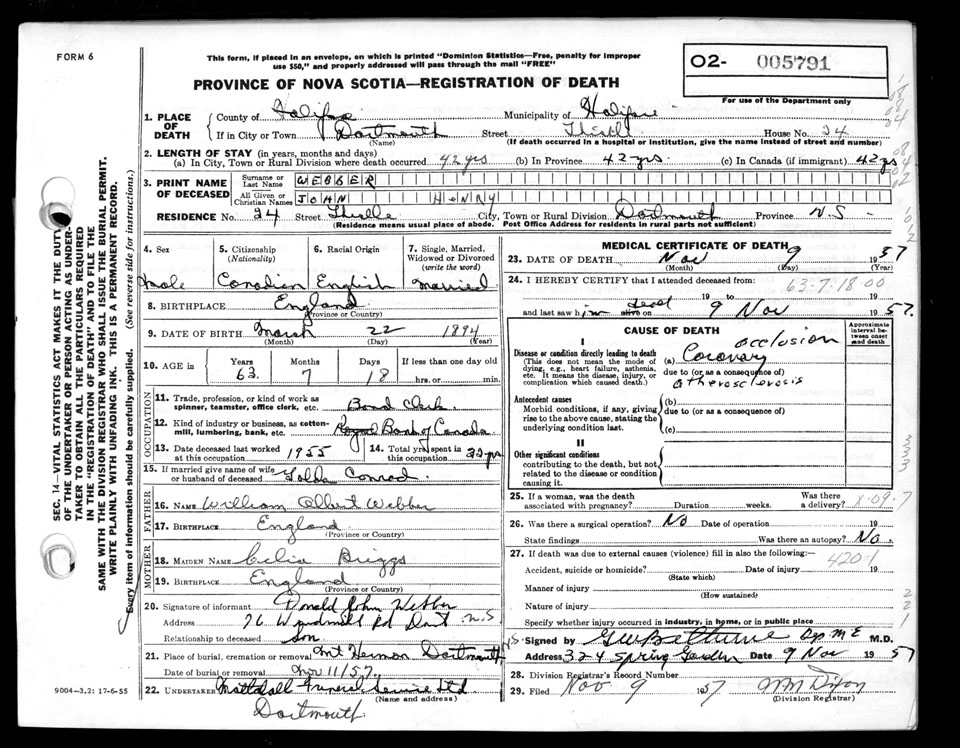 FORM 6
This form, if placed in an envelope, on which is printed "Dominion Statistics—Free, penalty for improper
use $50," and properly addressed will pass through the mail "FREE"
PROVINCE OF NOVA SCOTIA—REGISTRATION OF DEATH
02- 005791
For use of the Department only
1. PLACE OF DEATH
County of Halifax Municipality of Halifax
If in City or Town Dartmouth Street Thistle House No. 24
(Name) (If death occurred in a hospital or institution, give the name instead of street and number)
2. LENGTH OF STAY (in years, months and days)
(a) In City, Town or Rural Division where death occurred 42 yrs (b) In Province 42 yrs. (c) In Canada (if immigrant) 42 ys
3. PRINT NAME OF DECEASED
Surname or Last Name WEBBER
All Given or Christian Names JOHN HENRY
RESIDENCE No. 24 Street Thistle City, Town or Rural Division Dartmouth Province N.S.
(Residence means usual place of abode. Post Office Address for residents in rural parts not sufficient)
4. Sex Male
5. Citizenship (Nationality) Canadian
6. Racial Origin English
7. Single, Married, Widowed or Divorced (write the word) Married
8. BIRTHPLACE England
(Province or Country)
9. DATE OF BIRTH March 22 1894
(Month) (Day) (Year)
10. AGE in Years Months Days If less than one day old
63 7 18 hrs. or min.
OCCUPATION
11. Trade, profession, or kind of work as
spinner, teamster, office clerk, etc. Bond Clerk
12. Kind of industry or business, as cotton-
mill, lumbering, bank, etc. Royal Bank of Canada
13. Date deceased last worked
at this occupation 1955
14. Total yrs. spent in
this occupation 32 yrs
15. If married give name of wife
or husband of deceased Conrad
FATHER
16. NAME William Albert Webber
17. BIRTHPLACE England
(Province or Country)
MOTHER
18. MAIDEN NAME Celia Briggs
19. BIRTHPLACE England
(Province or Country)
20. Signature of informant Donald John Webber
Address 76 Windmill Rd Dart N.S
Relationship to deceased Son
21. Place of burial, cremation or removal Mt Hermon Dartmouth, NS
Date of burial or removal Nov 11/57
22. UNDERTAKER Mattatall Funeral Service Ltd
(Name and address)
Dartmouth
9004-3.2: 17-6-55
SEC. 14—VITAL STATISTICS ACT MAKES IT THE DUTY
OF THE UNDERTAKER OR PERSON ACTING AS UNDER-
TAKER TO OBTAIN ALL THE PARTICULARS REQUIRED
IN THE "REGISTRATION OF DEATH" AND TO FILE THE
SAME WITH THE DIVISION REGISTRAR WHO SHALL ISSUE THE BURIAL PERMIT.
WRITE PLAINLY WITH UNFADING INK. THIS IS A PERMANENT RECORD.
Every item of information should be carefully supplied. (See reverse side for instructions.)
MEDICAL CERTIFICATE OF DEATH
23. DATE OF DEATH Nov 9 1957
(Month) (Day) (Year)
24. I HEREBY CERTIFY that I attended deceased from:
63-7-18 00
19 to 19
and last saw him dead alive on 9 Nov 1957.
CAUSE OF DEATH
Approximate interval between onset and death
I
Disease or condition directly leading to death
(This does not mean the mode of
dying, e.g., heart failure, asthenia,
etc. It means the disease, injury, or
complication which caused death.)
(a) Coronary occlusion
due to (or as a consequence of)
atherosclerosis
Antecedent causes
Morbid conditions, if any, giving
rise to the above cause, stating the
underlying condition last.
(b)
due to (or as a consequence of)
(c)
II
Other significant conditions
contributing to the death, but not
related to the disease or condition
causing it.
25. If a woman, was the death
associated with pregnancy? Duration weeks. Was there a delivery?
X-09-7
26. Was there a surgical operation? No Date of operation 19
State findings Was there an autopsy? No
27. If death was due to external causes (violence) fill in also the following:—
420-1
Accident, suicide or homicide? Date of injury 19
(State which)
Manner of injury
(How sustained)
Nature of injury
Specify whether injury occurred in industry, in home, or in public place
Signed by GW Bethune Dep M E M.D.
Address 324 Spring Garden Date 9 Nov 1957
28. Division Registrar's Record Number
29. Filed Nov 9 1957 Dixon
(Division Registrar)